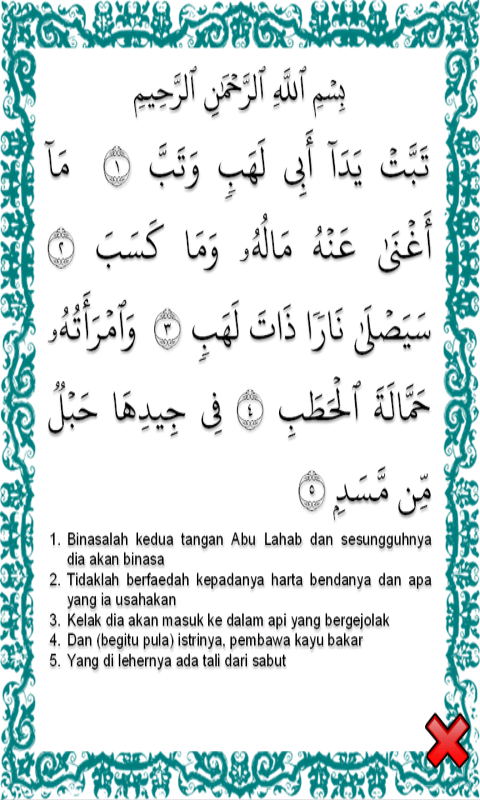 بِسْمِ ٱللَّهِ ٱلرَّحْمَٰنِ ٱلرَّحِيمِ
تَبَّتْ يَدَآ أَبِى لَهَبٍۢ وَتَبَّ ١ مَآ
أَغْنَىٰ عَنْهُ مَالُهُۥ وَمَا كَسَبَ ٢
سَيَصْلَىٰ نَارًۭا ذَاتَ لَهَبٍۢ ٣ وَٱمْرَأَتُهُۥ
حَمَّالَةَ ٱلْحَطَبِ ٤ فِى جِيدِهَا حَبْلٌۭ
مِّن مَّسَدٍۭ ٥
1. Binasalah kedua tangan Abu Lahab dan sesungguhnya
dia akan binasa
2. Tidaklah berfaedah kepadanya harta bendanya dan apa
yang ia usahakan
3. Kelak dia akan masuk ke dalam api yang bergejolak
4. Dan (begitu pula) istrinya, pembawa kayu bakar
5. Yang di lehernya ada tali dari sabut